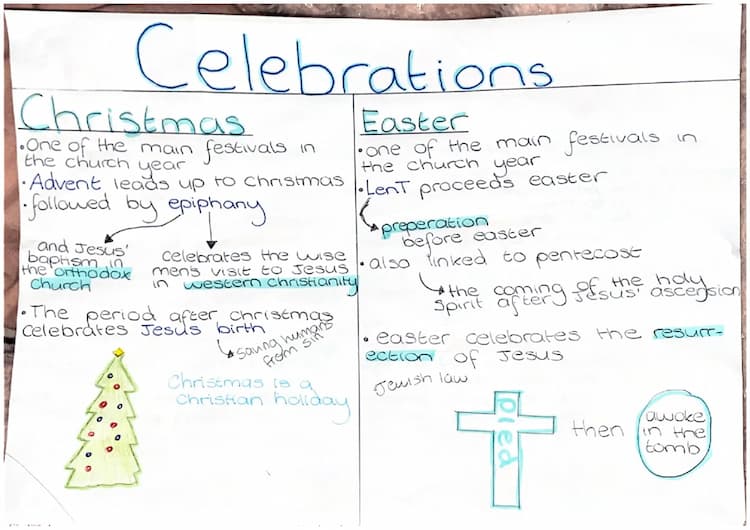 Celebrations
Christmas
• One of the main festivals in
the church year
• Advent leads up to christmas
• followed by epiphany
and Jesus'
baptism in
the orthodox
church
celebrates the wise
mens visit to Jesus
in western christianity
• The period after christmas
celebrates Jesus birth
saving humans
from sin
Christmas is a
Christian holiday
Easter
• one of the main festivals in
the church year
• LenT proceeds easter
preperation
before easter
• also linked to pentecost
the coming of the holy
spirit after Jesus' ascension
• easter celebrates the resurr-
ection of Jesus
Jewish law
Died
then
awoke
in the
tomb